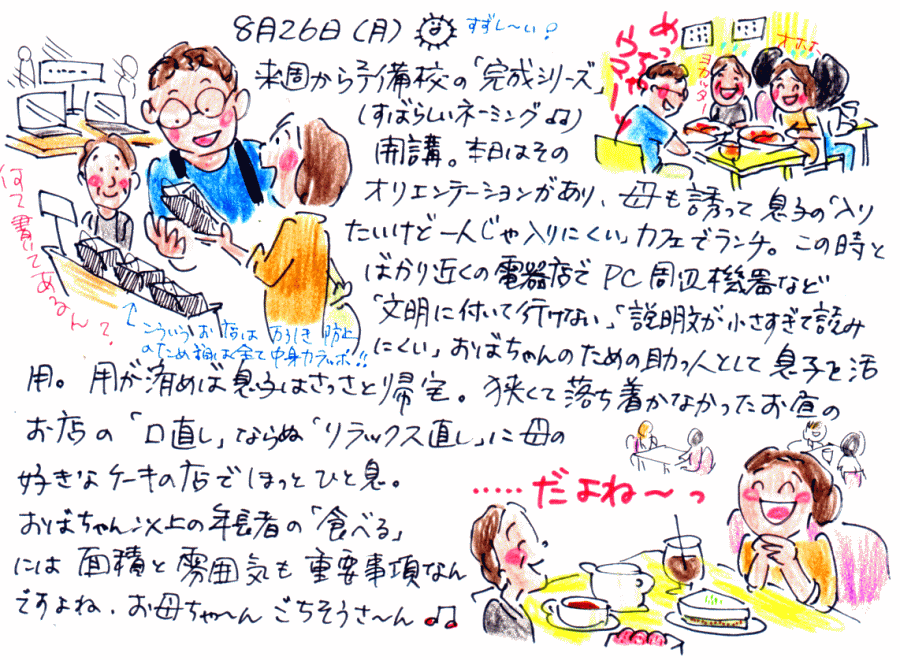 8月26日(月)
すずし〜い?
来週から予備校の「完成シリーズ」
(すばらしいネーミング♫)
開講。本日はその
オリエンテーションがあり、母も誘って息子の「入り
たいけど一人じゃ入りにくい」カフェでランチ。この時と
ばかり近くの電器店でPC周辺機器など
「文明に付いて行けない」「説明文が小さすぎて読み
にくい」おばちゃんのための助っ人として息子を活
用。用が済めば息子はさっさと帰宅。狭くて落ち着かなかったお昼の
お店の「口直し」ならぬ「リラックス直し」に母の
好きなケーキの店でほっとひと息。
おばちゃん以上の年長者の「食べる」
には面積と雰囲気も重要事項なん
ですよね、お母ちゃ〜んごちそうさ〜ん♫
めっちゃ
ウマーッ
オホホ
何て書いてあるん?
←こういうお店は万引き防止
のため箱は全て中身カラッポ!!
‥‥‥だよね〜っ